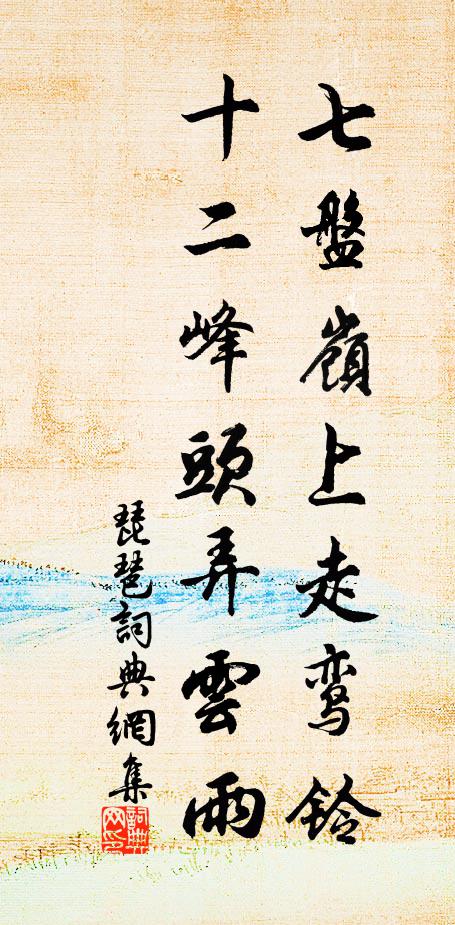 七盤嶺上走鸾铃
十二峰頭弄雲雨
琵琶詞典網集